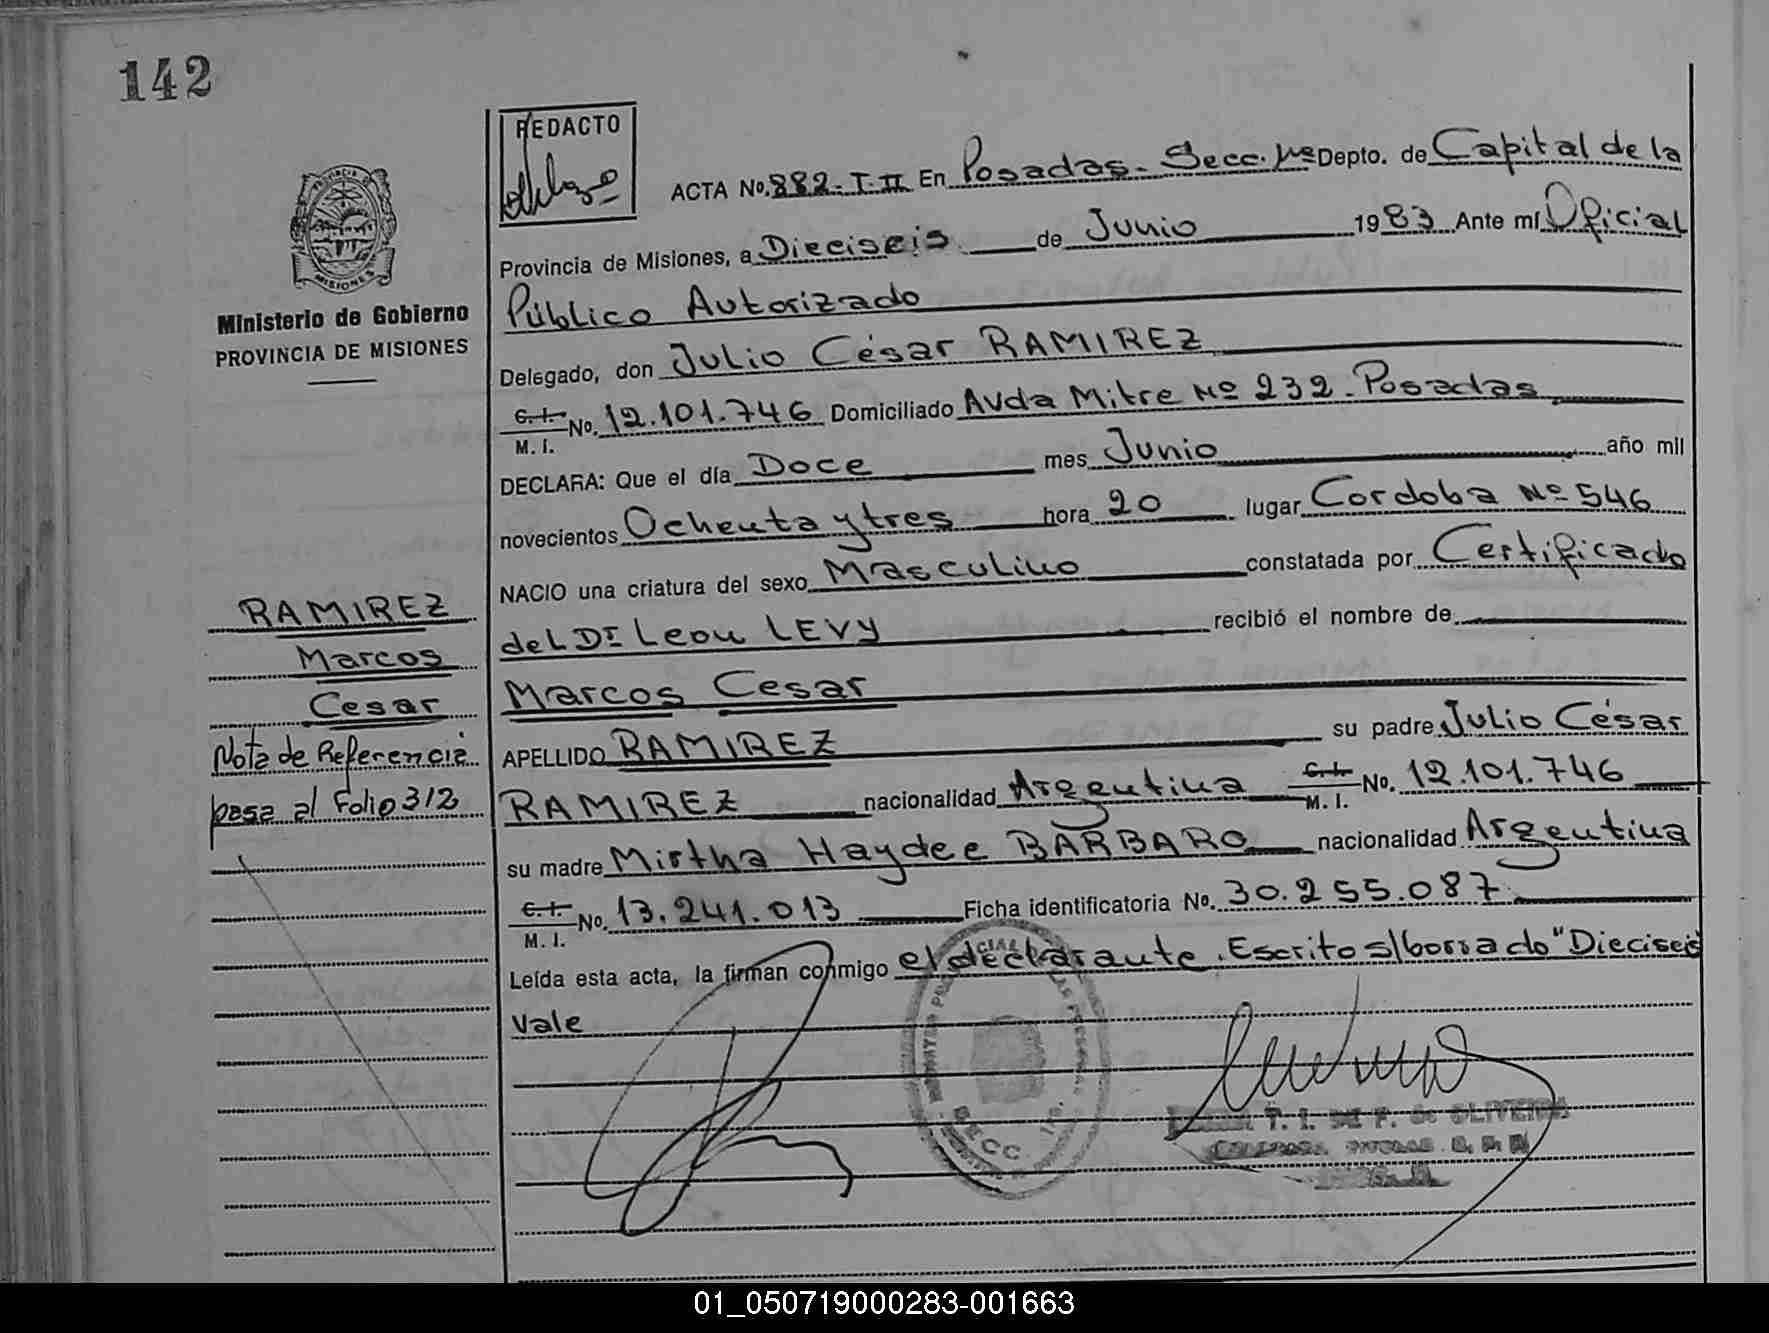 142
REDACTO
ACTA No. 882-T.II En Posadas- Secc. 1ª Depto. de Capital de la
Provincia de Misiones, a Dieciseis de Junio 1983 Ante mí Oficial
Público Autorizado
Delegado, don Julio César RAMIREZ
C.I. M.I. No. 12.101.746 Domiciliado Avda Mitre Nº 232-Posadas
DECLARA: Que el día Doce mes Junio año mil
novecientos Ochenta y tres hora 20 lugar Cordoba Nº 546
NACIO una criatura del sexo Masculino constatada por Certificado
del Dr Leon LEVY recibió el nombre de
Marcos Cesar
APELLIDO RAMIREZ su padre Julio César
RAMIREZ nacionalidad Argentina C.I. M.I. No. 12.101.746
su madre Mirtha Haydee BÁRBARO nacionalidad Argentina
C.I. M.I. No. 13.241.013 Ficha identificatoria No. 30.255.087
Leída esta acta, la firman conmigo el declarante. Escrito s/borrado "Dieciseis
Vale
PROVINCIA DE
MISIONES
Ministerio de Gobierno
PROVINCIA DE MISIONES
RAMIREZ
Marcos
Cesar
Nota de Referencia
pasa al Folio 312
SECC.
OLIVEIRA
01_050719000283-001663